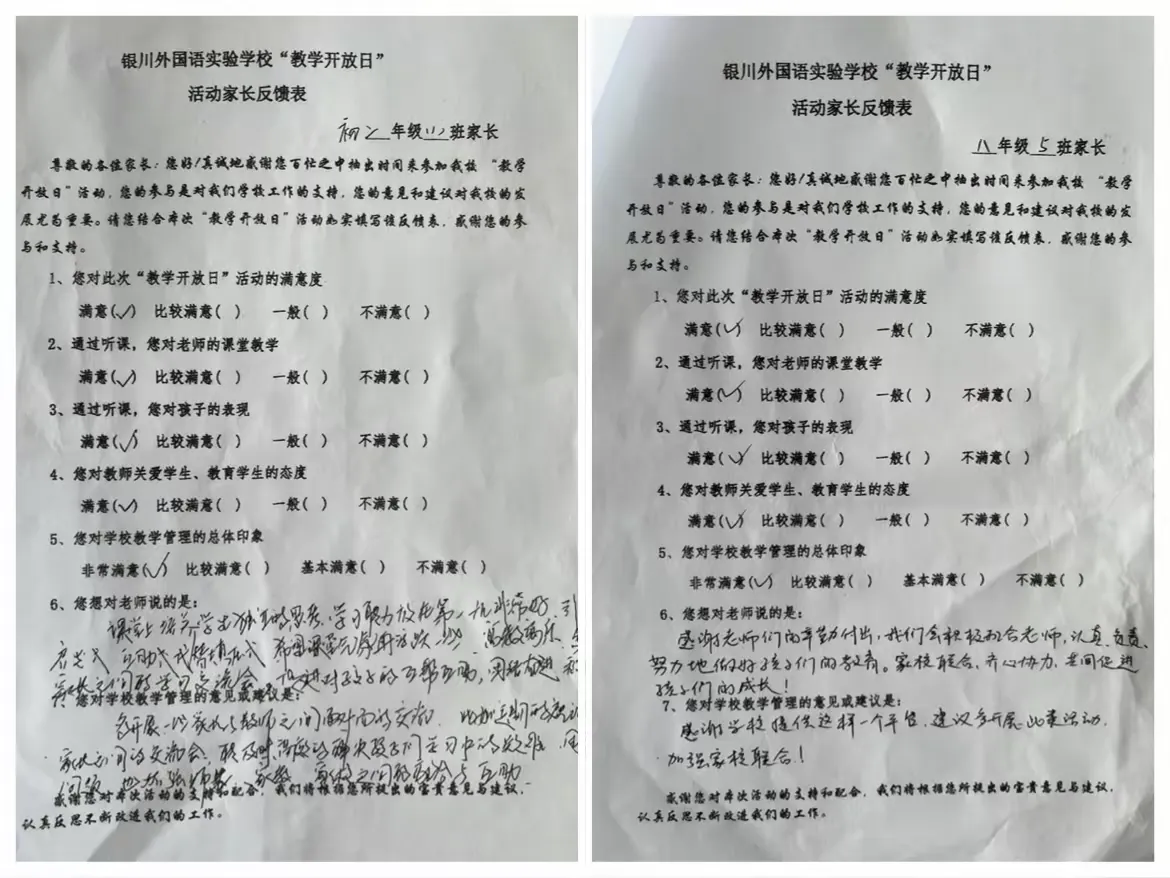 银川外国语实验学校“教学开放日”
活动家长反馈表
初二年级(1)班家长
尊敬的各位家长：您好！真诚地感谢您百忙之中抽出时间来参加我校“教学
开放日”活动，您的参与是对我们学校工作的支持，您的意见和建议对我校的发
展尤为重要。请您结合本次“教学开放日”活动如实填写该反馈表，感谢您的参
与和支持。
1、您对此次“教学开放日”活动的满意度
满意(✓) 比较满意( ) 一般( ) 不满意( )
2、通过听课，您对老师的课堂教学
满意(✓) 比较满意( ) 一般( ) 不满意( )
3、通过听课，您对孩子的表现
满意(✓) 比较满意( ) 一般( ) 不满意( )
4、您对教师关爱学生、教育学生的态度
满意(✓) 比较满意( ) 一般( ) 不满意( )
5、您对学校教学管理的总体印象
非常满意(✓) 比较满意( ) 基本满意( ) 不满意( )
6、您想对老师说的是：
课堂上培养学生独立的思考、学习能力放在第一位非常好，引
希望课堂
家长之间的学习交流会，促进对孩子的互帮互助，团结奋进
7、您对学校教学管理的意见或建议是：
多开展一些家长与教师之间面对面的交流
家长之间的交流会，解决孩子们学习中的
问题
感谢您对本次活动的支持和配合，我们将根据您所提出的宝贵意见与建议，
认真反思不断改进我们的工作。
银川外国语实验学校“教学开放日”
活动家长反馈表
八年级5班家长
尊敬的各位家长：您好！真诚地感谢您百忙之中抽出时间来参加我校“教学
开放日”活动，您的参与是对我们学校工作的支持，您的意见和建议对我校的发
展尤为重要。请您结合本次“教学开放日”活动如实填写该反馈表，感谢您的参
与和支持。
1、您对此次“教学开放日”活动的满意度
满意(✓) 比较满意( ) 一般( ) 不满意( )
2、通过听课，您对老师的课堂教学
满意(✓) 比较满意( ) 一般( ) 不满意( )
3、通过听课，您对孩子的表现
满意(✓) 比较满意( ) 一般( ) 不满意( )
4、您对教师关爱学生、教育学生的态度
满意(✓) 比较满意( ) 一般( ) 不满意( )
5、您对学校教学管理的总体印象
非常满意(✓) 比较满意( ) 基本满意( ) 不满意( )
6、您想对老师说的是：
感谢老师们的辛勤付出，我们会积极配合老师，认真、负责、
努力地做好孩子们的教育。家校联合，齐心协力，共同促进
孩子们的成长！
7、您对学校教学管理的意见或建议是：
感谢学校提供这样一个平台，建议多开展此类活动，
加强家校联合！
感谢您对本次活动的支持和配合，我们将根据您所提出的宝贵意见与建议，
认真反思不断改进我们的工作。